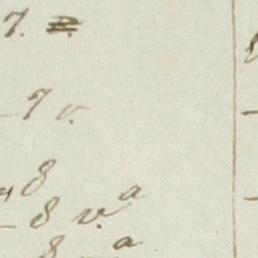 7.
7 v.
8
8 v. a
8 a